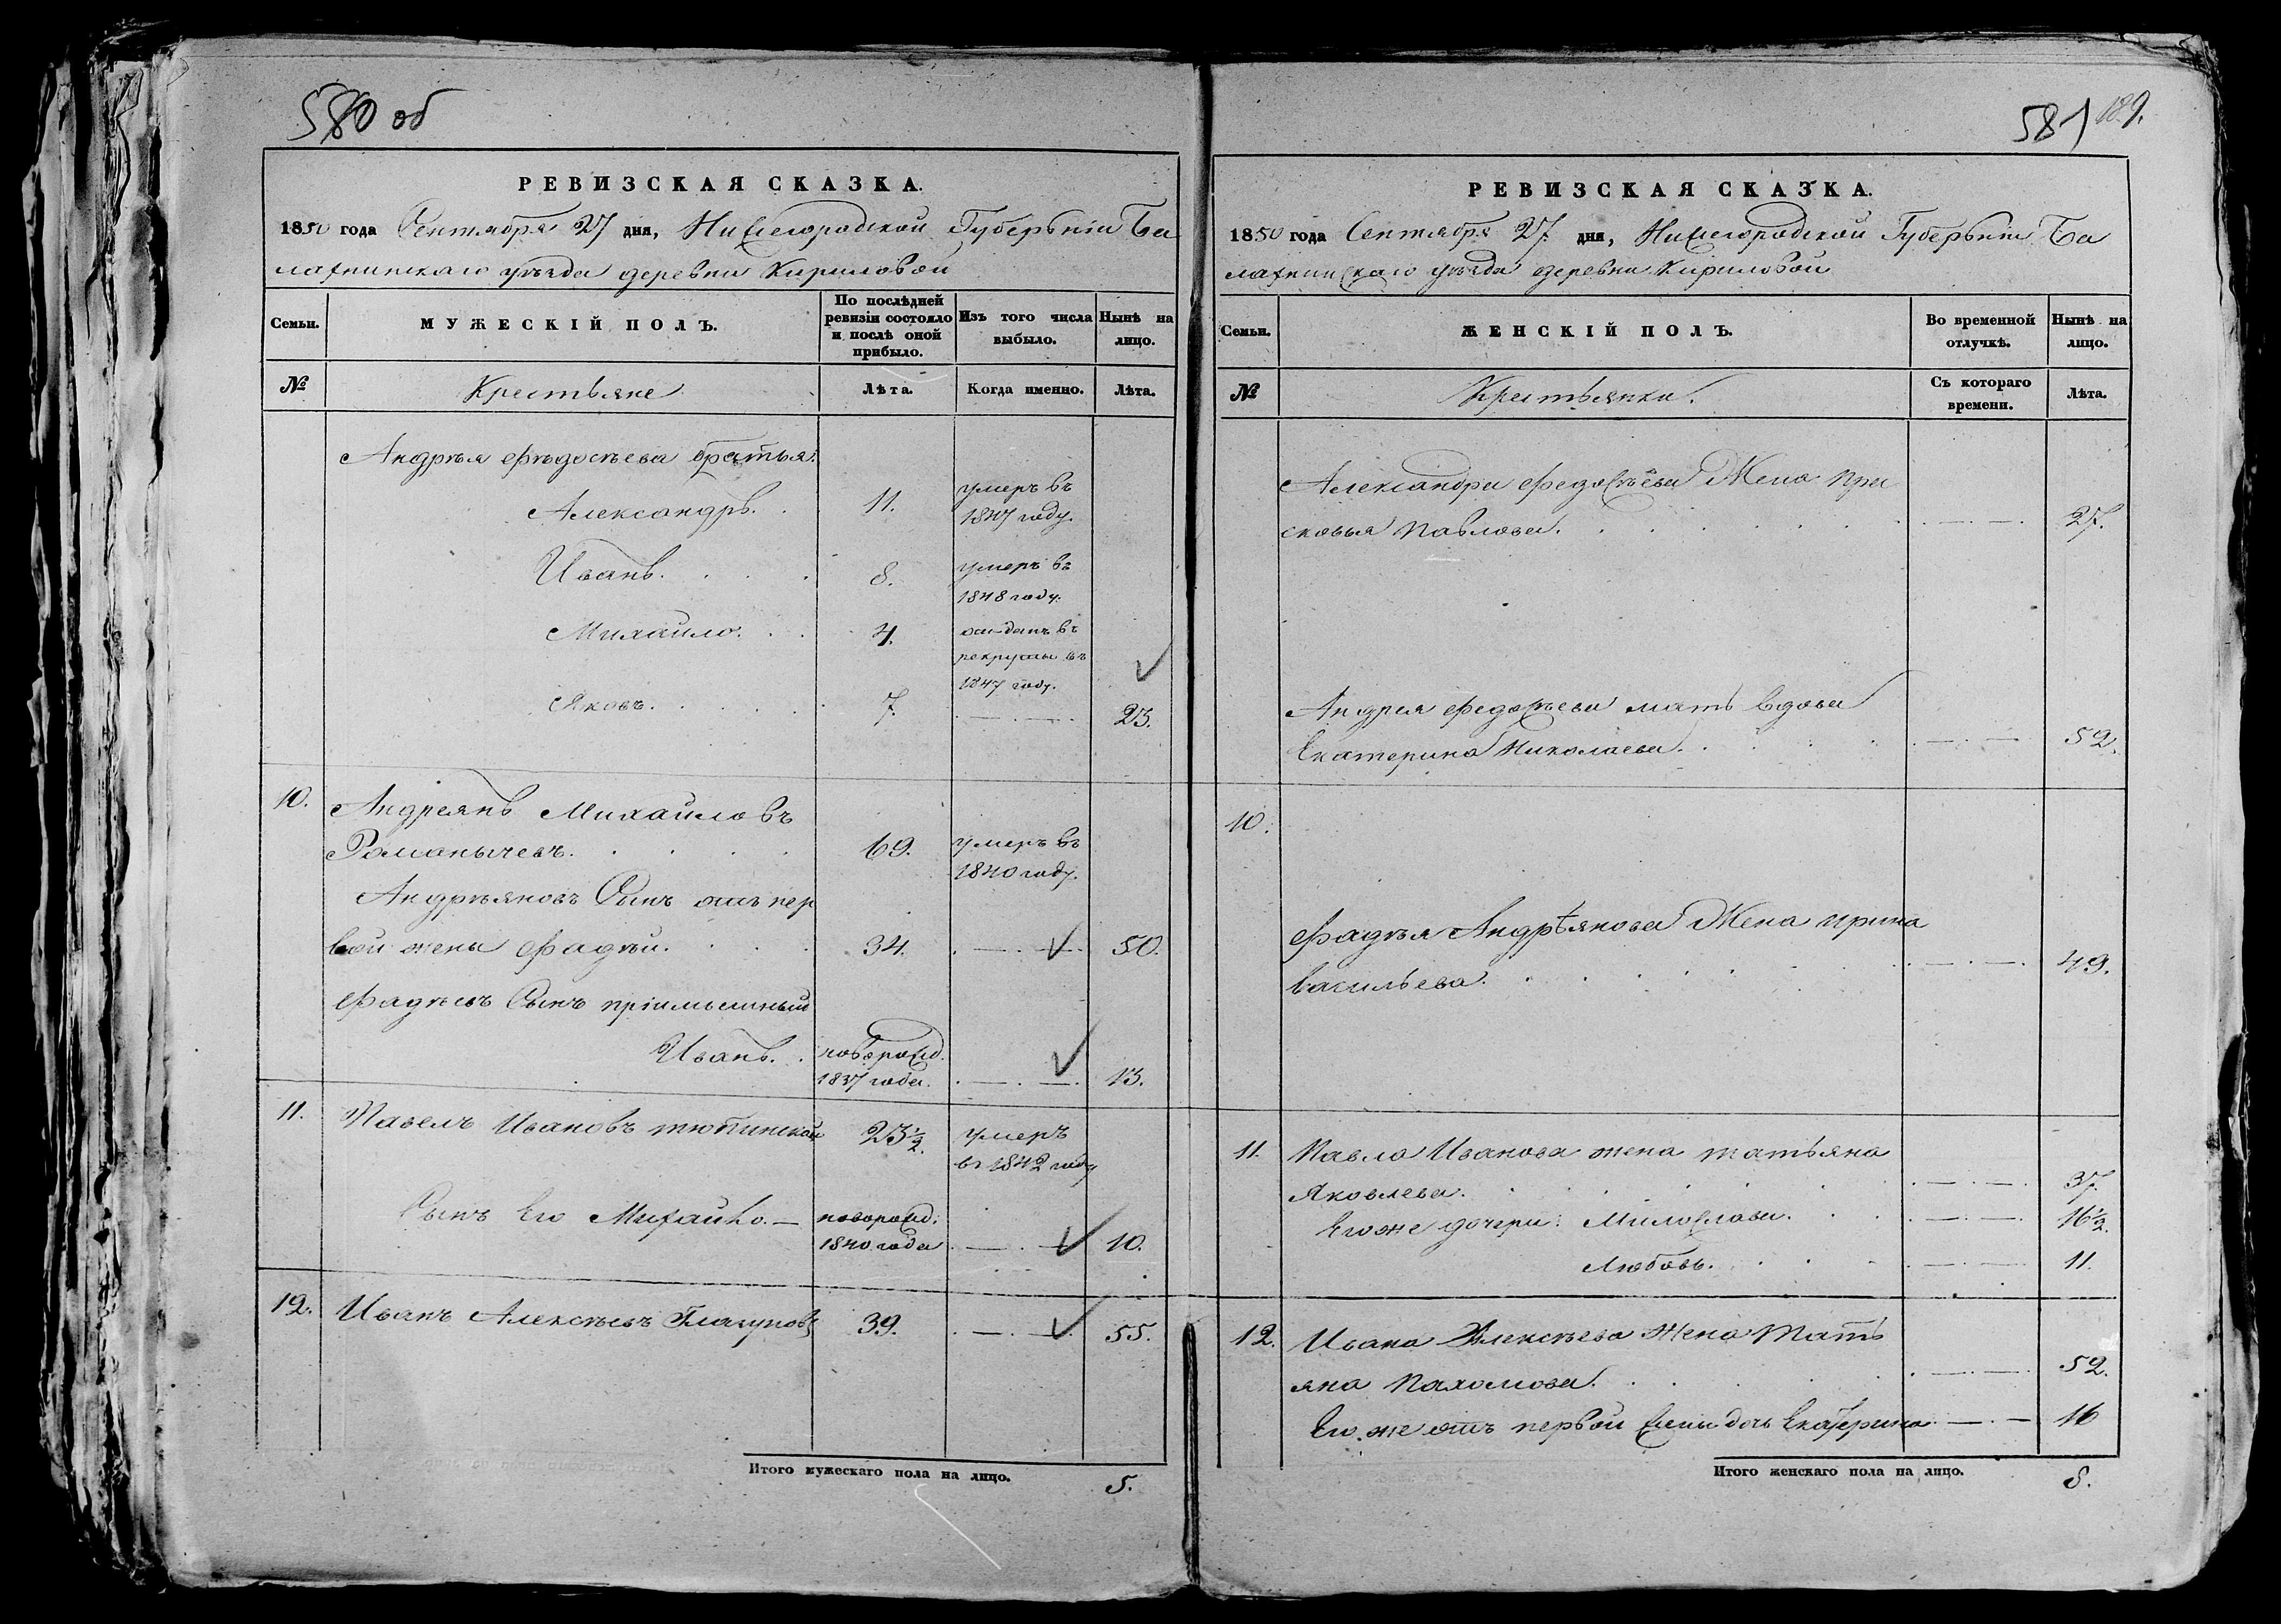 580 об
РЕВИЗСКАЯ СКАЗКА.
1850 года Сентября 27 дня, Нижегородской Губерьніи Ба
лахнинскаго уѣзда деревни Кириловой
Семьи.
МУЖЕСКІЙ ПОЛЪ.
По послѣдней ревизіи состояло и послѣ оной прибыло.
Изъ того числа выбыло.
Нынѣ на лицо.
№
Крестьяне
Лѣта.
Когда именно.
Лѣта.
Андрѣя Ѳедосѣева братья:
Александръ. 11. умеръ въ
1847 году.
Иванъ. 8. умеръ въ
1848 году.
Михайло. 4. отданъ въ
рекруты въ
1847 году.
Яковъ. 7. 23.
10. Андреянъ Михайловъ
Романычевъ. 69. умеръ въ
1840 году.
Андрѣяновъ Сынъ отъ пер
вой жены Фадѣй. 34. 50.
Фадѣевъ Сынъ пріимышный
Иванъ. новорожд.
1837 года. 13.
11. Павелъ Ивановъ 23½. умеръ
въ 1842 году
Сынъ Его Михайло. новорожд:
1840 года 10.
12. Иванъ Алексѣевъ 39. 55.
Итого мужескаго пола на лицо. 5.
581 189.
РЕВИЗСКАЯ СКАЗКА.
1850 года Сентября 27. дня, Нижегородской Губерьніи Ба
лахнинскаго уѣзда деревни Кириловой
Семьи.
ЖЕНСКІЙ ПОЛЪ.
Во временной отлучкѣ.
Нынѣ на лицо.
№
Крестьянки.
Съ котораго времени.
Лѣта.
Александра Федосѣева Жена Пра
сковья Павлова. 27.
Андрея Федосѣева мать вдова
Екатерина Николаева. 52.
10.
Фадѣя Андрѣянова Жена Ирина
Васильева. 49.
11. Павла Иванова жена Татьяна
Яковлева. 37.
Его же дочери: Милослава. 16½.
Любовь. 11.
12. Ивана Алексѣева Жена Тать
яна Пахомова. 52.
Его же отъ первой жены дочь Екатерина 16
Итого женскаго пола на лицо. 8.